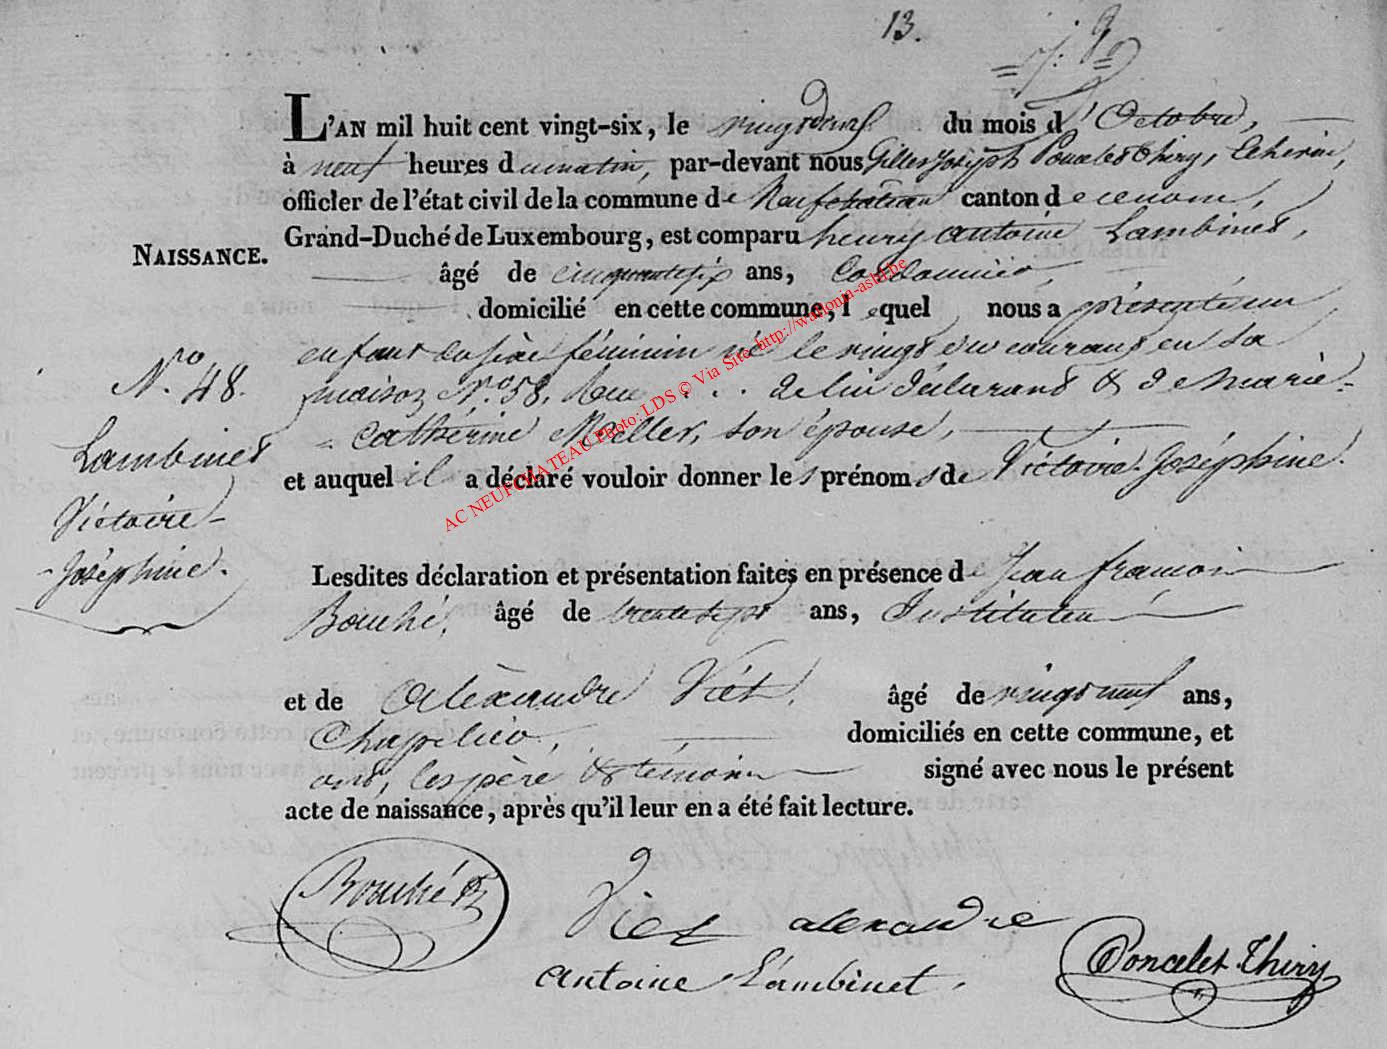 13.
L'AN mil huit cent vingt-six, le vingt deux du mois d'Octobre,
à neuf heures du matin, par-devant nous Gilles Joseph Poncelet Thiry, Echevin,
officier de l'état civil de la commune de Neufchateau canton de cenom,
Grand-Duché de Luxembourg, est comparu henry antoine Lambinet,
NAISSANCE.
âgé de cinquante six ans, Cordonnier
domicilié en cette commune, lequel nous a présenté un
enfant du sèxe féminin né le vingt du courant en sa
N.º 48.
maison N.º 58, Rue . . . de lui déclarant & de Marie-
Catherine Meller, son épouse,
Lambinet
et auquel il a déclaré vouloir donner les prénoms de Victoire-Joséphine.
Victoire-
-Joséphine.
Lesdites déclaration et présentation faites en présence de Jean françois
Bouché, âgé de trente sept ans, Instituteur
et de Alèxandre Viet, âgé de vingt neuf ans,
Chapelier, domiciliés en cette commune, et
ont, les père & témoins signé avec nous le présent
acte de naissance, après qu'il leur en a été fait lecture.
Bouché
Viet alexandre
antoine Lambinet.
Poncelet-Thiry
AC NEUFCHATEAU Photo: LDS © Via Site http://wallonia-asbl.be